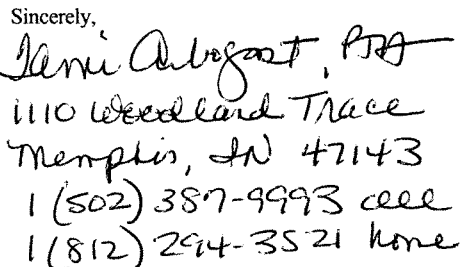 Sincerely,
Tami Arbogast, PTA
1110 Woodland Trace
Memphis, IN 47143
1 (502) 387-9993 cell
1 (812) 294-3521 home